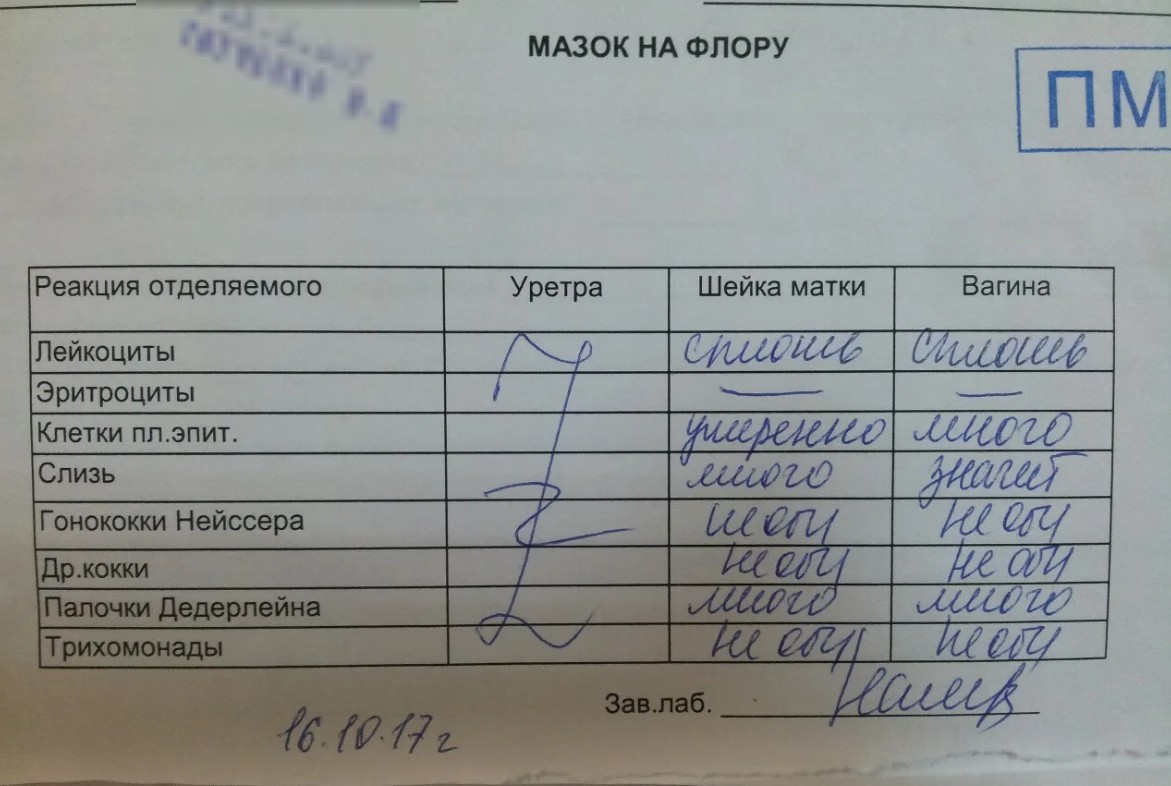 МАЗОК НА ФЛОРУ
ПМ
Реакция отделяемого Уретра Шейка матки Вагина
Лейкоциты сплошь сплошь
Эритроциты — —
Клетки пл.эпит. умеренно много
Слизь много значит
Гонококки Нейссера не обн не обн
Др.кокки не обн не обн
Палочки Дедерлейна много много
Трихомонады не обн не обн
Зав.лаб.
16.10.17 г